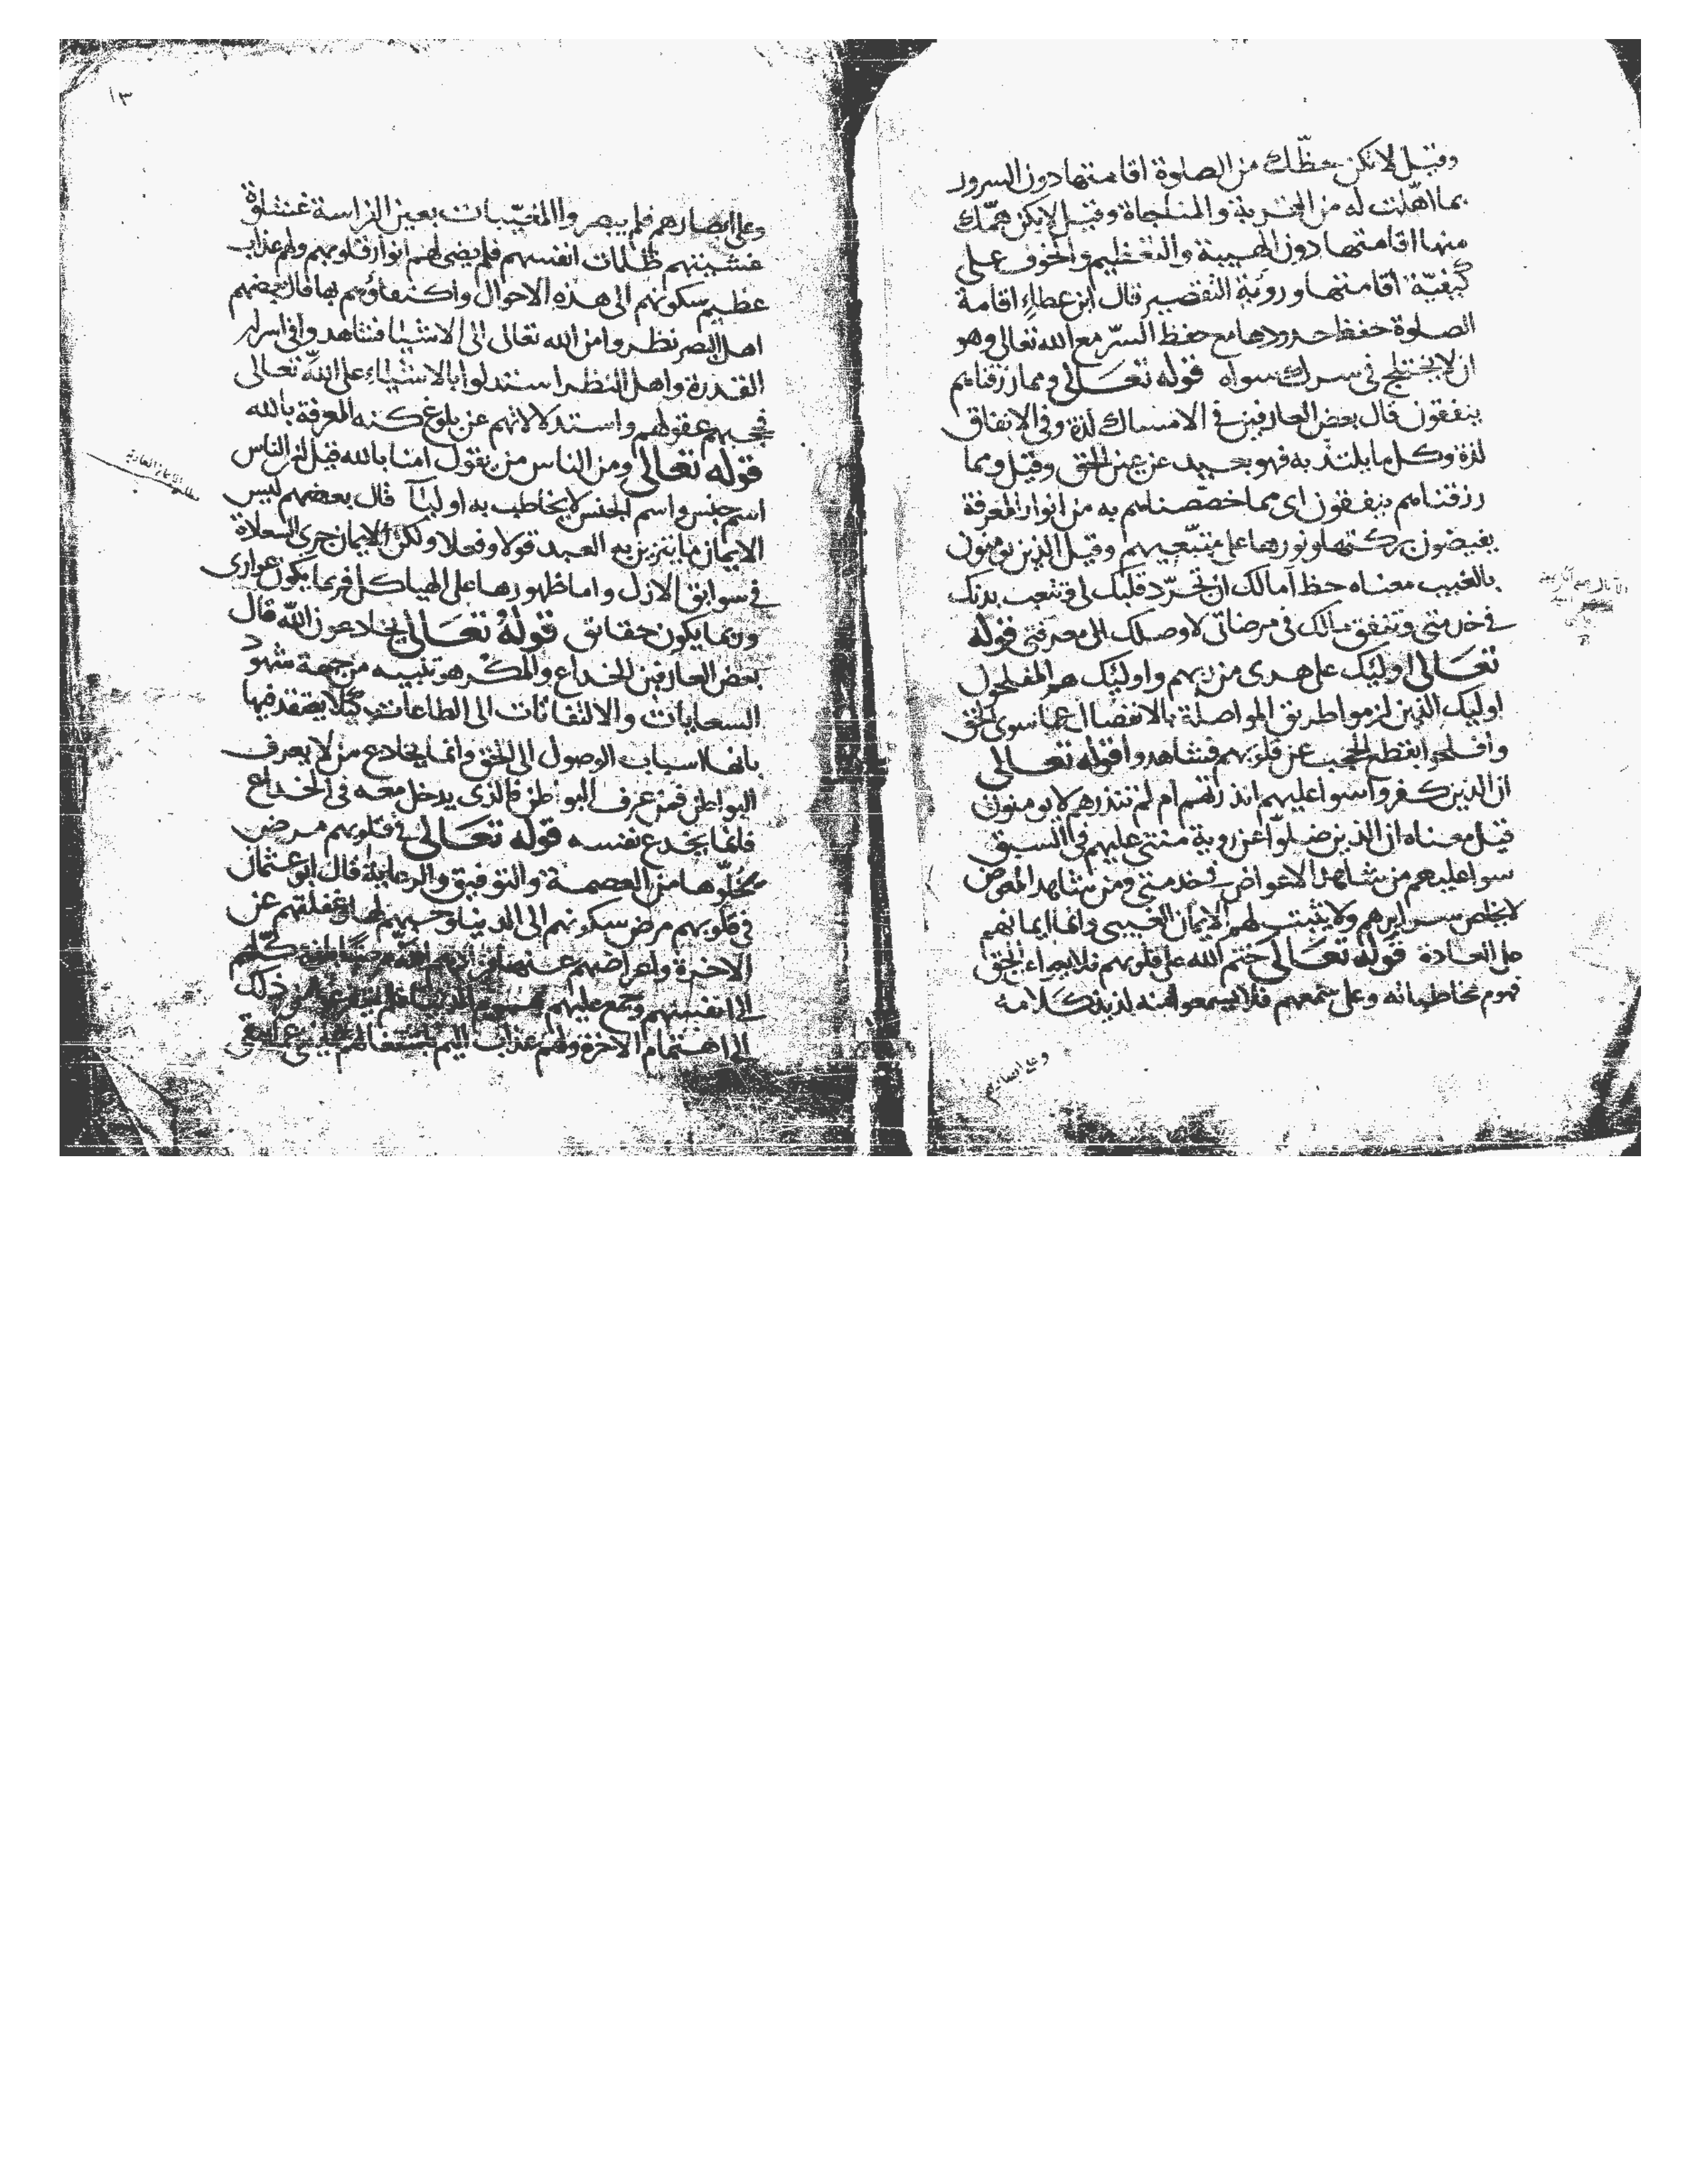 وقيل لا تكن حظّك من الصلوة اقامتها دون السرور
بما اهّلت له من القربة والمناجاة وقيل لا يكن همّك
منها اقامتها دون الهيبة والتعظيم والخوف على
كيفيّة اقامتها ورؤية التقصير قال ابن عطاء اقامة
الصلوة حفظ حدودها مع حفظ السرّ مع الله تعالى وهو
ان لا يختلج في سرك سواه قوله تعالى ومما رزقناهم
ينفقون قال بعض العارفين في الامساك لذة وفي الانفاق
لذة وكل ما يلتذ به فهو بعيد عن عين الحق وقيل ومما
رزقناهم ينفقون اى مما خصّصناهم به من انوار المعرفة
يفيضون بركتها ونورها على متبّعيهم وقيل الذين يؤمنون
بالغيب معناه حظ آمالك ان تجرّد قلبك لي وتتعب بدنك
في خدمتى وتنفق مالك في مرضاتى لاوصلك الى معرفتى قوله
تعالى اوليك على هدى من ربهم واوليك هم المفلحون
اوليك الذين لزموا طريق المواصلة بالانفصال عما سوى الحق
وافلحوا بقطع الحجب عن قلوبهم فشاهدوا قوله تعالى
ان الذين كفروا سوا عليهم انذرتهم ام لم تنذرهم لا يومنون
قيل معناه ان الذين ضلوا عن روية منتى عليهم في السبق
سوا عليهم من شاهد الاعواض في خدمتى ومن شاهد المعوض
لا يخلص سرايرهم ولا يثبت لهم الايمان الغيبى وانما ايمانهم
على العادة قوله تعالى ختم الله على قلوبهم فلا
فهوم مخاطباته وعلى سمعهم فلا يسمعوا منه لذيذ كلامه
وعلى ابصارهم
١٣
وعلى ابصارهم فلم يبصروا المغيّبات بعين الفراسة غشاوة
غشيتهم ظلمات انفسهم فلم يضئ لهم انوار قلوبهم ولهم عذاب
عظيم سكونهم الى هذه الاحوال واكتفاؤهم بها قال بعضهم
اهل البصر نظروا من الله تعالى الى الاشيا فشاهدوا في اسرار
القدرة واهل النظر استدلوا بالاشياء على الله تعالى
فحجبهم عقولهم واستدلالاتهم عن بلوغ كنه المعرفة بالله
قوله تعالى ومن الناس من يقول امنا بالله قيل الناس
اسم جنس واسم الجنس لا يخاطب به اوليآ قال بعضهم ليس
الايمان ما يتزين به العبد قولا وفعلا ولكن الايمان جرى السعادة
في سوابق الازل واما ظهورها على الهياكل فربما يكون عوارى
وربما يكون حقائق قوله تعالى يخادعون الله قال
بعض العارفين الخداع والمكر هو تنبيه من جهة شهود
السعايات والالتفاتات الى الطاعات كيلا يعتقد فيها
بانها اسباب الوصول الى الحق وانما يخادع من لا يعرف
البواطن فمن عرف البواطن فالذى يدخل معه في الخداع
فانما يخدع نفسه قوله تعالى في قلوبهم مرض
بخلّوها من العصمة والتوفيق والرعاية قال ابو عثمان
في قلوبهم مرض سكونهم الى الدنيا وحبهم لها وغفلتهم عن
الاخرة واعراضهم عنها
الى انفسهم وجمع عليهم هموم الدنيا ذلك
الى اهتمام الاخرة ولهم عذاب اليم